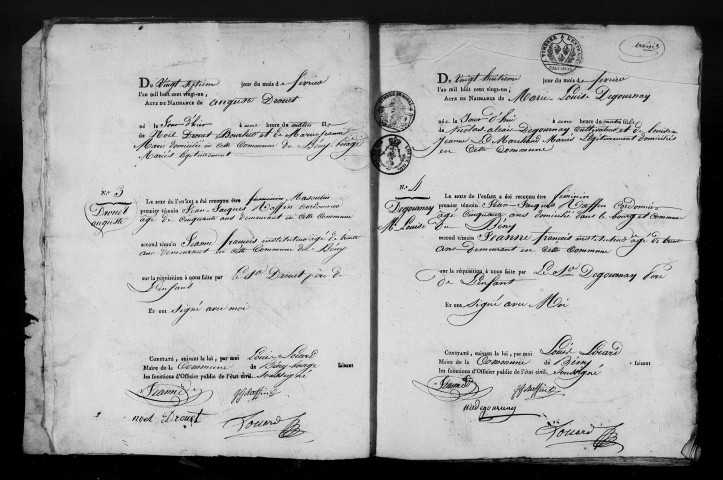 Du Vingt Septieme jour du mois de fevrier
l'an mil huit cent vingt-un,
ACTE DE NAISSANCE de auguste Drouet
né le Jour d'hier à une heure du matin fils
de Noël Drouet et de Marie jeanne
domiciliés en cette Commune de Bény bocage
Mariés legitimement
N° 3
Drouet
auguste
Le sexe de l'enfant a été reconnu être Masculin
premier témoin Jean Jacques Haffin Cordonnier
âgé de Cinquante ans demeurant en cette Commune
second témoin Jeanne françois instituteur âgé de trente
ans demeurant en cette Commune de Bény
sur la réquisition à nous faite par Le Sr Drouet père de
L'enfant
Et ont Signé avec moi
CONSTATÉ, suivant la loi, par moi Louis Lotard
Maire de la Commune de Bény bocage faisant
les fonctions d'Officier public de l'état civil. Soussigné
Jeanne
noel Drouet
Du Vingt huitieme jour du mois de fevrier
l'an mil huit cent vingt-un,
ACTE DE NAISSANCE de Marie Louise Degournay
née le Jour d'hui à une heure du matin fille
de Nicolas alexis Degournay Cultivateur et de Louise
Jeanne Le Marchand Mariés légitimement domiciliés
en Cette Commune
N° 4
Degournay
M. Louise
Le sexe de l'enfant a été reconnu être féminin
premier témoin Jean Jacques Haffin Cordonnier
âgé Cinquante ans domicilié dans le bourg et Commune
de Bény
second témoin Jeanne françois instituteur âgé de trente
ans demeurant en cette Commune
sur la réquisition à nous faite par Le Sr Degournay Père
de L'enfant
Et ont Signé avec Moi
CONSTATÉ, suivant la loi, par moi Louis Lotard
Maire de la Commune de Bény faisant
les fonctions d'Officier public de l'état civil. Soussigné
Jeanne